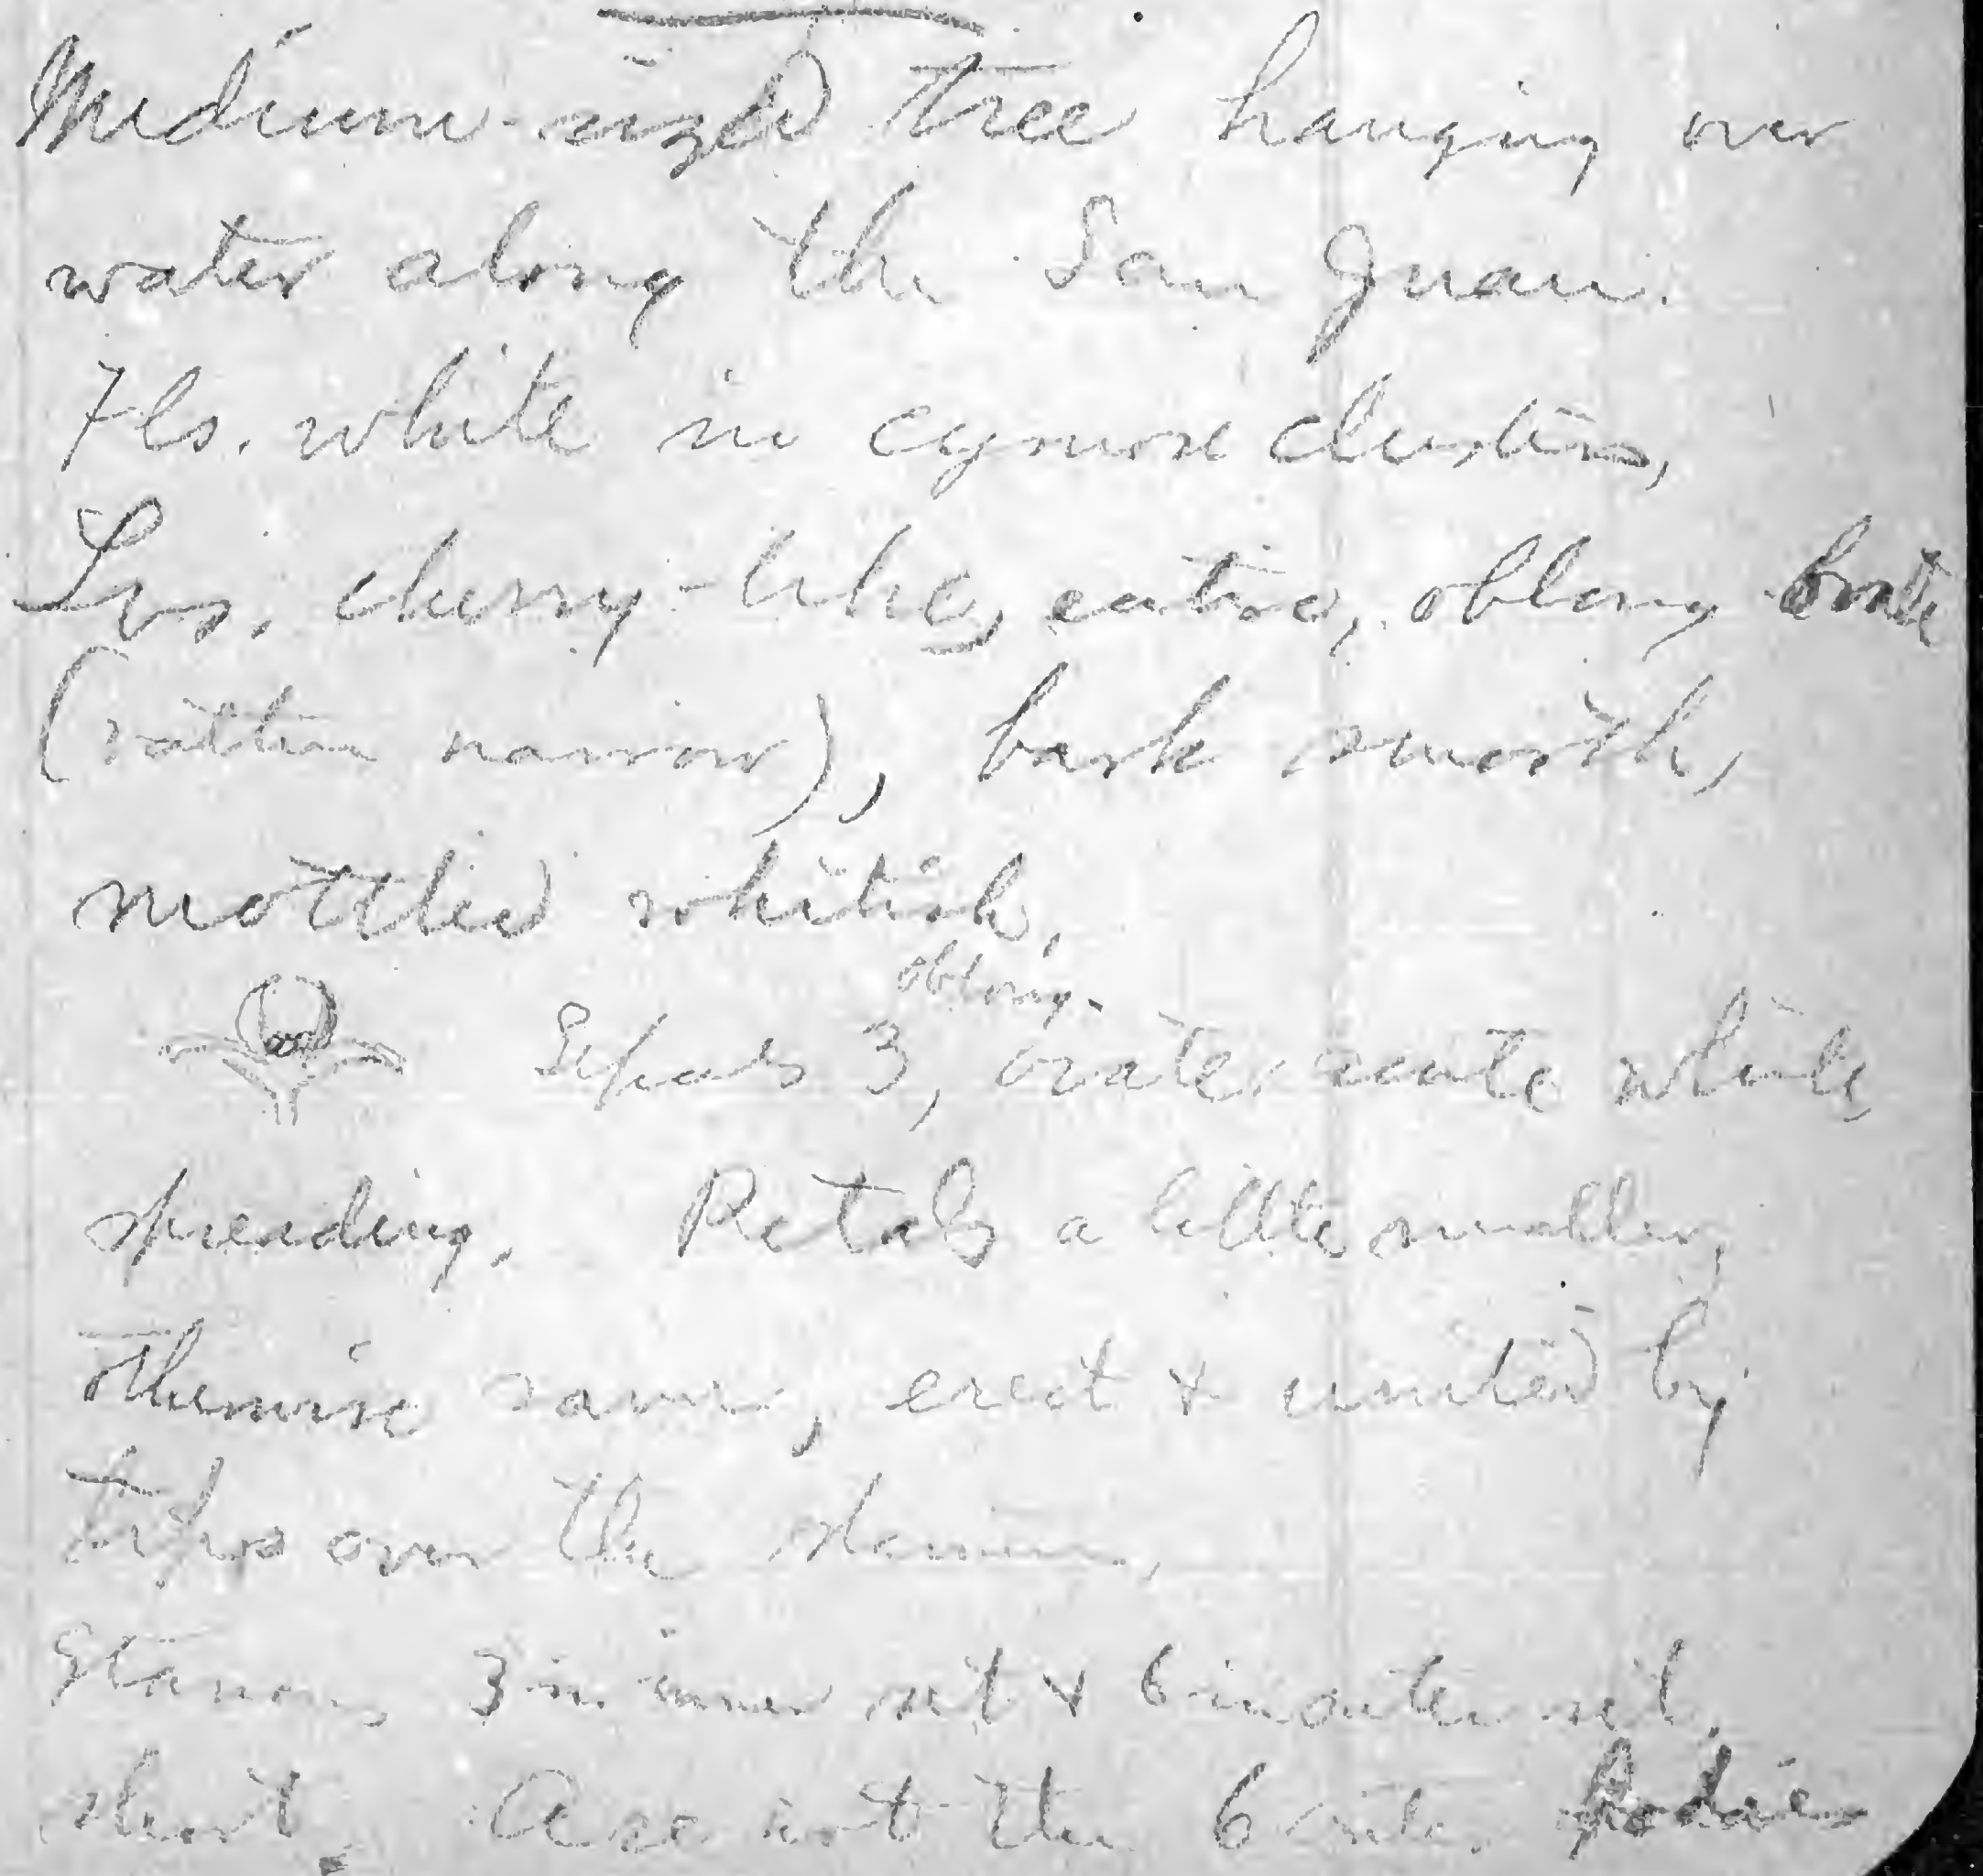 Medium-sized tree hanging over
water along the San Juan.
Fls. white in cymose clusters,
Lvs. cherry-like, entire, oblong ovate
(rather narrow), bark smooth,
mottled whitish,
oblong-
Sepals 3, ovate, acute white,
spreading. Petals a little smaller,
otherwise same, erect & united by
tips over the stamens,
Stamens 3 in inner set & 6 in outer set,
short. Are not the 6 outer bodies